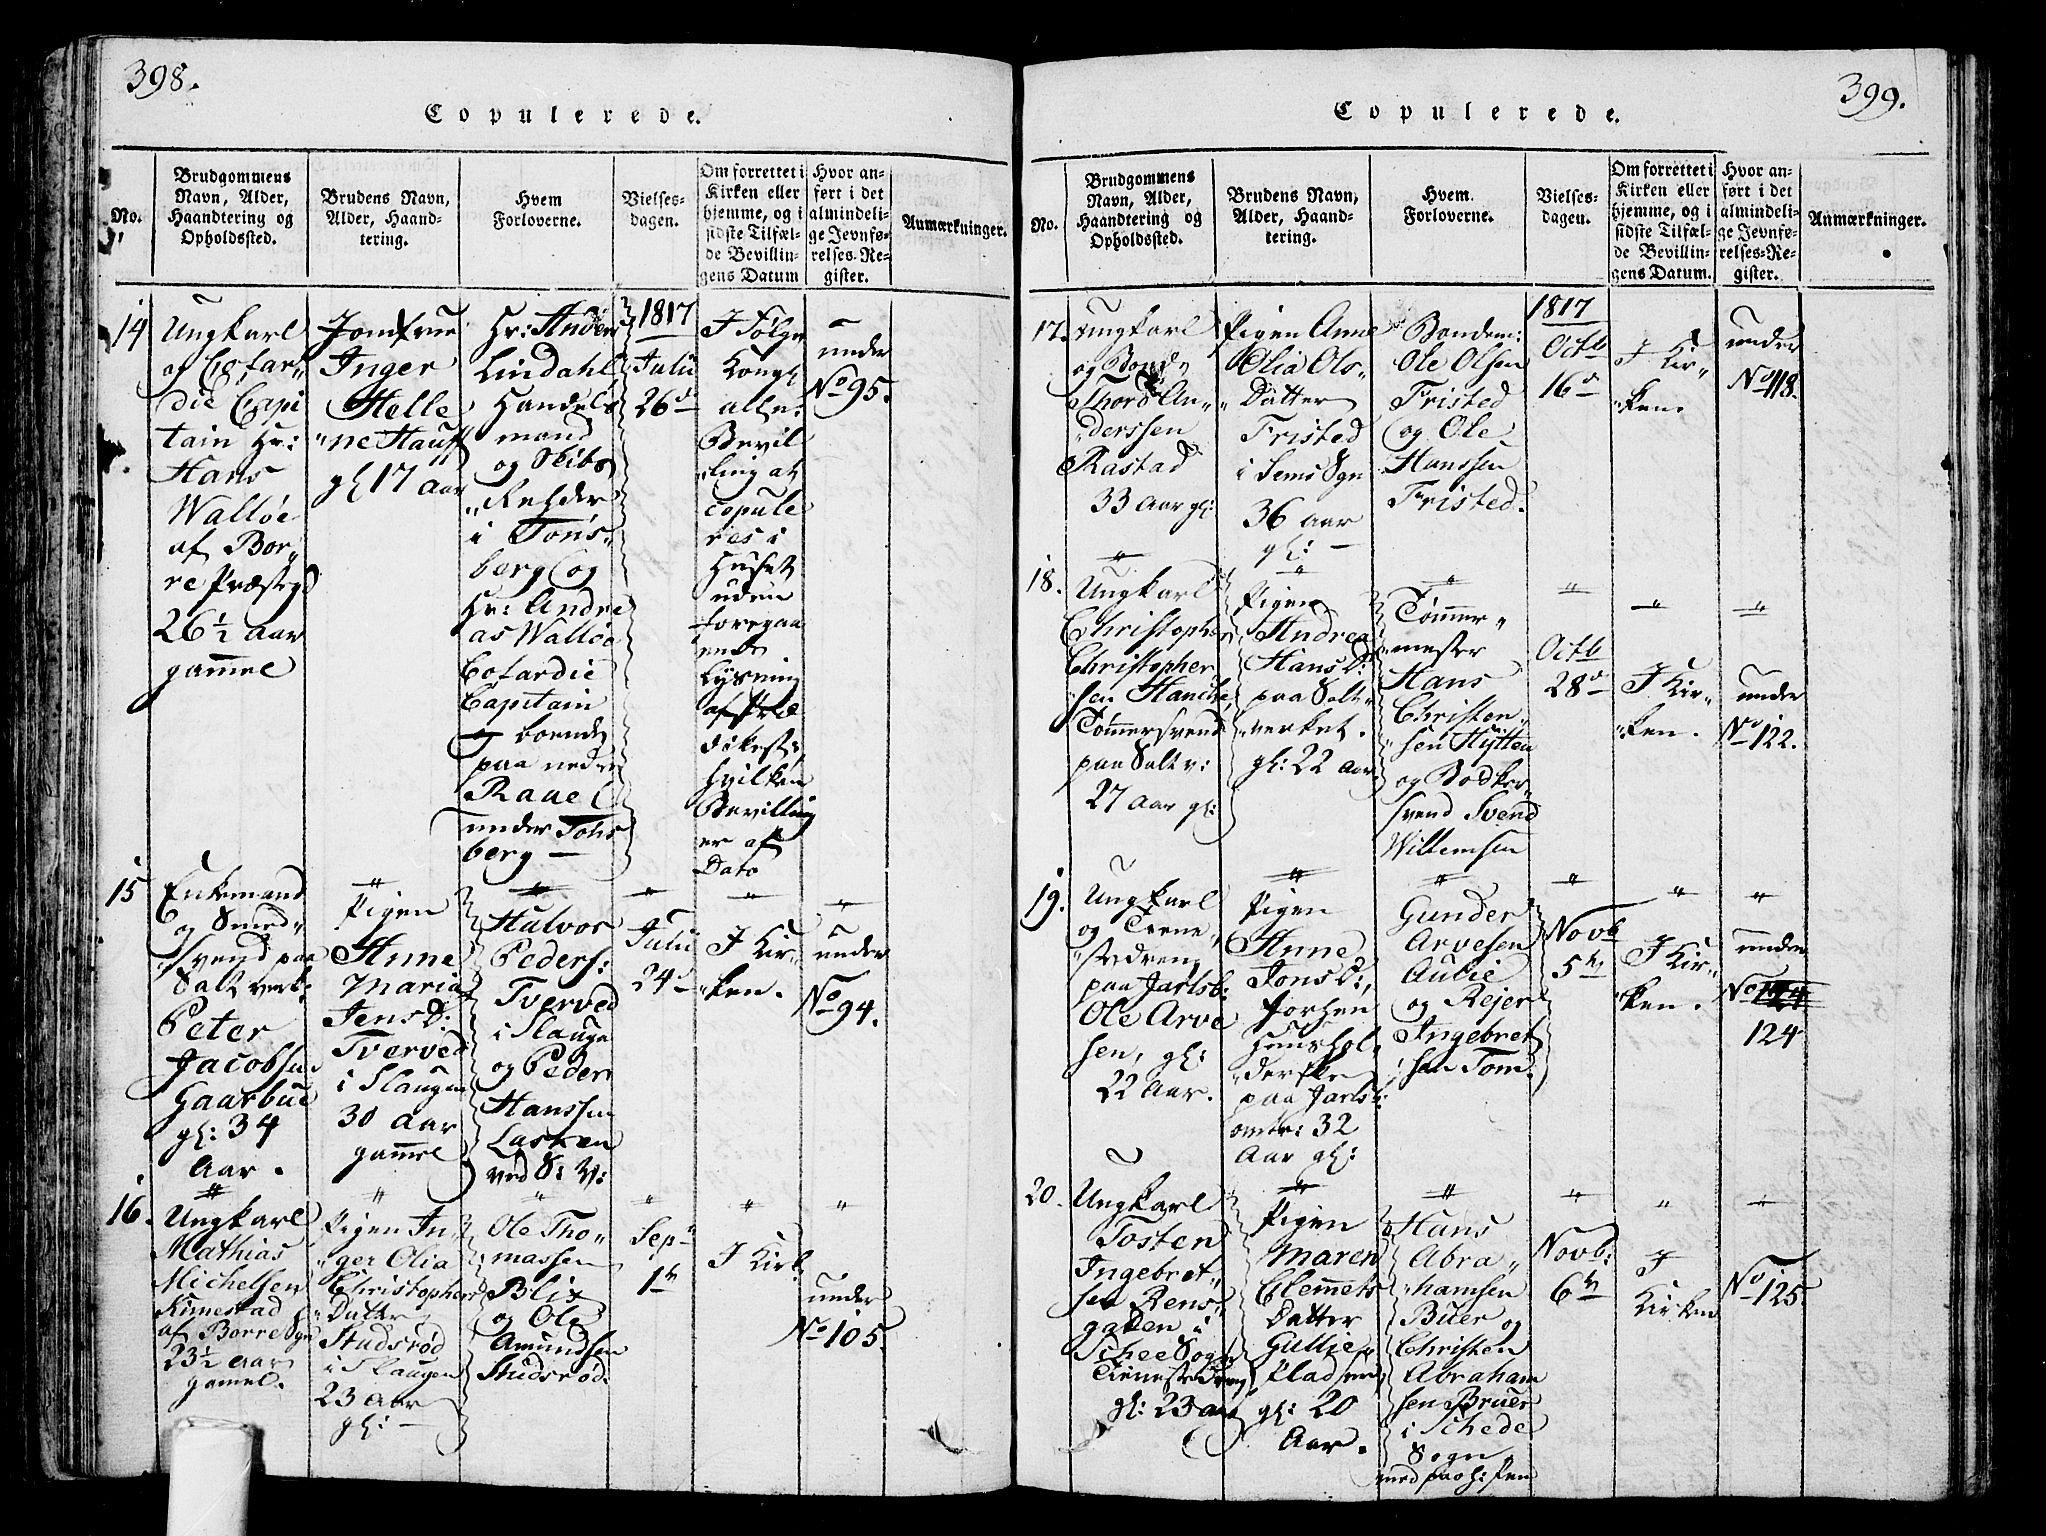 398.
Copulerede.
No.
Brudgommens
Navn, Alder,
Haandtering og
Opholdssted.
Brudens Navn,
Alder, Haand-
tering.
Hvem
Forloverne.
Vielses-
dagen.
Om forrettet i
Kirken eller
hjemme, og i
sidste Tilfæl-
de Bevillin-
gens Datum
Hvor an-
ført i det
almindeli-
ge Jevnfø-
relses-Re-
gister.
Anmærkninger.
14
Ungkarl
og Cofar-
die Capi
tain Hr:
Hans
Walløe
af Bor-
re Præstegd
26½ Aar
gammel
Jomfrue
Inger
Helle
ne Hauff
gl 17 Aar
Hr: Anders
Lindahl
Handels
mand
og Skibs
Rehder
i Tøns-
berg og
Hr: Andre
as Walløe
Cofardie
Capitain
og boende
paa nedre
Rauel
under Tøns
berg
1817
Julii
26d
I Følge
Kongl
aller.
Bevil
ling at
copule
res i
Huset
uden
foregaa
ende
Lysning
af Præ
dikest:
hvilken
Bevilling
er af
Dato
under
No 95.
15
Enkemand
og Smed-
svend paa
Saltverk:
Peter
Jacobsen
Gaasbue
gl: 34
Aar.
Pigen
Anne
Maria
Jens D:
Tverved
i Slaugen
30 Aar
gammel
Halvor
Peders:
Tverved
i Slauge
og Peder
Hanssen
Lasken
ved S: V:
Julii
24d
I Kir-
ken.
under
No 94.
16.
Ungkarl
Mathias
Michelsen
Kimestad
af Borre Sgn
23½ Aar
gamel.
Pigen In-
ger Olia
Christophers
Datter
Studsrød
i Slaugen
23 Aar
gl:
Ole Tho-
massen
Blix
og Ole
Amundsen
Studsrød.
Sep
1te
I Kirk:
under
No 105.
399.
Copulerede.
No.
Brudgommens
Navn, Alder,
Haandtering og
Opholdssted.
Brudens Navn,
Alder, Haand-
tering.
Hvem
Forloverne.
Vielses-
dagen.
Om forrettet i
Kirken eller
hjemme, og i
sidste Tilfæl-
de Bevillin-
gens Datum.
Hvor an-
ført i det
almindeli-
ge Jevnfø-
relses-Re-
gister.
Anmærkninger.
17.
Ungkarl
og Bond
Thord An-
derssen
Rastad
33 Aar gl:
Pigen Anne
Olia Ols-
Datter
Fristed
i Sems Sgn
36 Aar
gl:
Bondem:
Ole Olsen
Fristed
og Ole
Hanssen
Fristed.
1817
Octb
16d
I Kir-
ken.
under
No 118.
18.
Ungkarl
Christopher
Christopher
sen Hanche,
Tømmersvend
paa Saltv:
27 Aar gl:
Pigen
Andrea
Hans D:
paa Salt-
verket.
gl: 22 Aar
Tømmer-
mester
Hans
Christen-
sen Hytten
og Bødker-
svend Svend
Willemsen
Octb
28d
I Kir-
ken.
under
No 122.
19.
Ungkarl
og Tiene-
stedreng
paa Jarlsb:
Ole Arve
sen, gl:
22 Aar.
Pigen
Anne
Jons D:,
forhen
Huushol-
derske
paa Jarlsb:
32
Aar gl:
Gunder
Arvesen
Aulie
og Rejer
Ingebret
sen Tom.
Novb
5te
I Kir-
ken.
under
No
124
20.
Ungkarl
Tosten
Ingebret-
sen Rens-
gaden i
Schee Sogn
Tienestedreng
gl: 23 Aar
Pigen
Maren
Clemmets
Datter
Gullie-
pladsen,
gl: 20
Aar.
Hans
Abra-
hamsen
Buer og
Christen
Abraham
sen Bruer
i Schede
Sogn
Novb:
6te
I
Kirken
No 125.